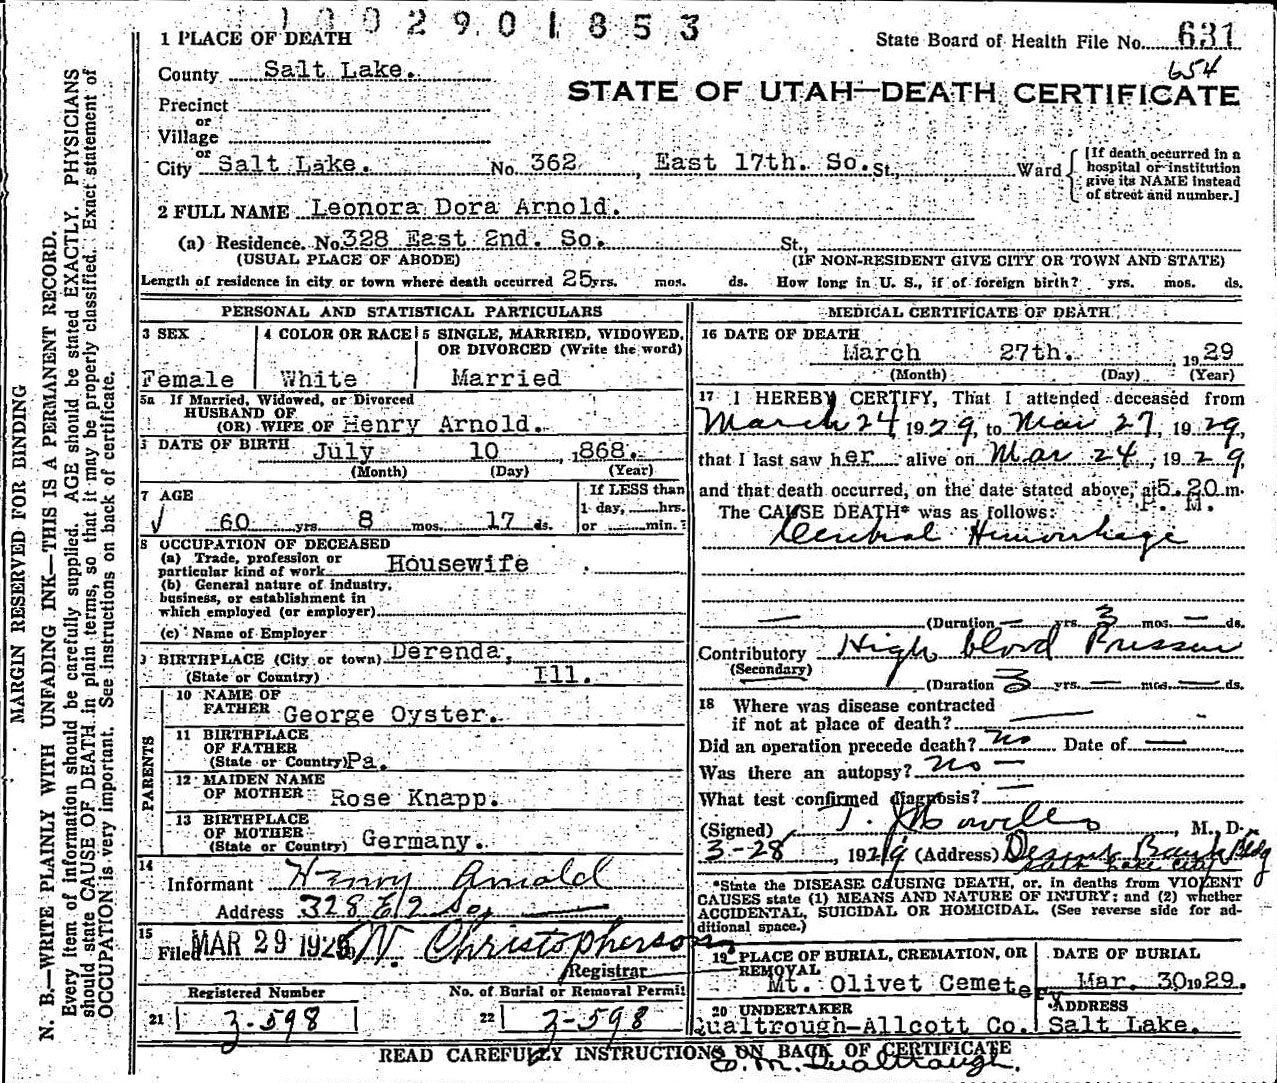 1002901853
1 PLACE OF DEATH
State Board of Health File No. 631
654
County Salt Lake.
STATE OF UTAH—DEATH CERTIFICATE
Precinct
or
Village
or
City Salt Lake. No. 362, East 17th. So. St., Ward
[If death occurred in a hospital or institution give its NAME instead of street and number.]
2 FULL NAME Leonora Dora Arnold.
(a) Residence. No. 328 East 2nd. So. St.,
(USUAL PLACE OF ABODE) (IF NON-RESIDENT GIVE CITY OR TOWN AND STATE)
Length of residence in city or town where death occurred 25 yrs. mos. ds. How long in U. S., if of foreign birth? yrs. mos. ds.
PERSONAL AND STATISTICAL PARTICULARS
3 SEX 4 COLOR OR RACE 5 SINGLE, MARRIED, WIDOWED,
OR DIVORCED (Write the word)
Female White Married
5a If Married, Widowed, or Divorced
HUSBAND OF
(OR) WIFE OF Henry Arnold.
6 DATE OF BIRTH July 10, 1868.
(Month) (Day) (Year)
7 AGE If LESS than
1 day, hrs.
60 yrs. 8 mos. 17 ds. or min.?
8 OCCUPATION OF DECEASED
(a) Trade, profession or
particular kind of work Housewife
(b) General nature of industry,
business, or establishment in
which employed (or employer)
(c) Name of Employer
9 BIRTHPLACE (City or town) Derenda,
(State or Country) Ill.
PARENTS
10 NAME OF
FATHER George Oyster.
11 BIRTHPLACE
OF FATHER
(State or Country) Pa.
12 MAIDEN NAME
OF MOTHER Rose Knapp.
13 BIRTHPLACE
OF MOTHER
(State or Country) Germany.
14
Informant Henry Arnold
Address 328 E 2 So
15
Filed MAR 29 1929 N. Christopherson
Registrar
Registered Number No. of Burial or Removal Permit
21 3-598 22 3-598
MEDICAL CERTIFICATE OF DEATH
16 DATE OF DEATH
March 27th. 1929
(Month) (Day) (Year)
17 I HEREBY CERTIFY, That I attended deceased from
March 24, 1929, to Mar 27, 1929,
that I last saw her alive on Mar 24, 1929,
and that death occurred, on the date stated above, at 5.20 m.
P. M.
The CAUSE DEATH* was as follows:
Cerebral Hemorrhage
(Duration — yrs. 3 mos. — ds.
Contributory High blood Pressure
(Secondary)
(Duration 3 yrs. — mos. — ds.
18 Where was disease contracted
if not at place of death? —
Did an operation precede death? no Date of —
Was there an autopsy? no —
What test confirmed diagnosis? —
(Signed) M. D.
3-28, 1929 (Address) Deseret Bank Bldg
Salt Lake City
*State the DISEASE CAUSING DEATH, or, in deaths from VIOLENT
CAUSES state (1) MEANS AND NATURE OF INJURY; and (2) whether
ACCIDENTAL, SUICIDAL OR HOMICIDAL. (See reverse side for ad-
ditional space.)
19 PLACE OF BURIAL, CREMATION, OR
REMOVAL
Mt. Olivet Cemetery
DATE OF BURIAL
Mar. 30 1929.
20 UNDERTAKER
Qualtrough-Allcott Co.
ADDRESS
Salt Lake.
READ CAREFULLY INSTRUCTIONS ON BACK OF CERTIFICATE
E. M. Qualtrough.
MARGIN RESERVED FOR BINDING
N. B.—WRITE PLAINLY WITH UNFADING INK—THIS IS A PERMANENT RECORD.
Every item of information should be carefully supplied. AGE should be stated EXACTLY. PHYSICIANS
should state CAUSE OF DEATH in plain terms, so that it may be properly classified. Exact statement of
OCCUPATION is very important. See instructions on back of certificate.